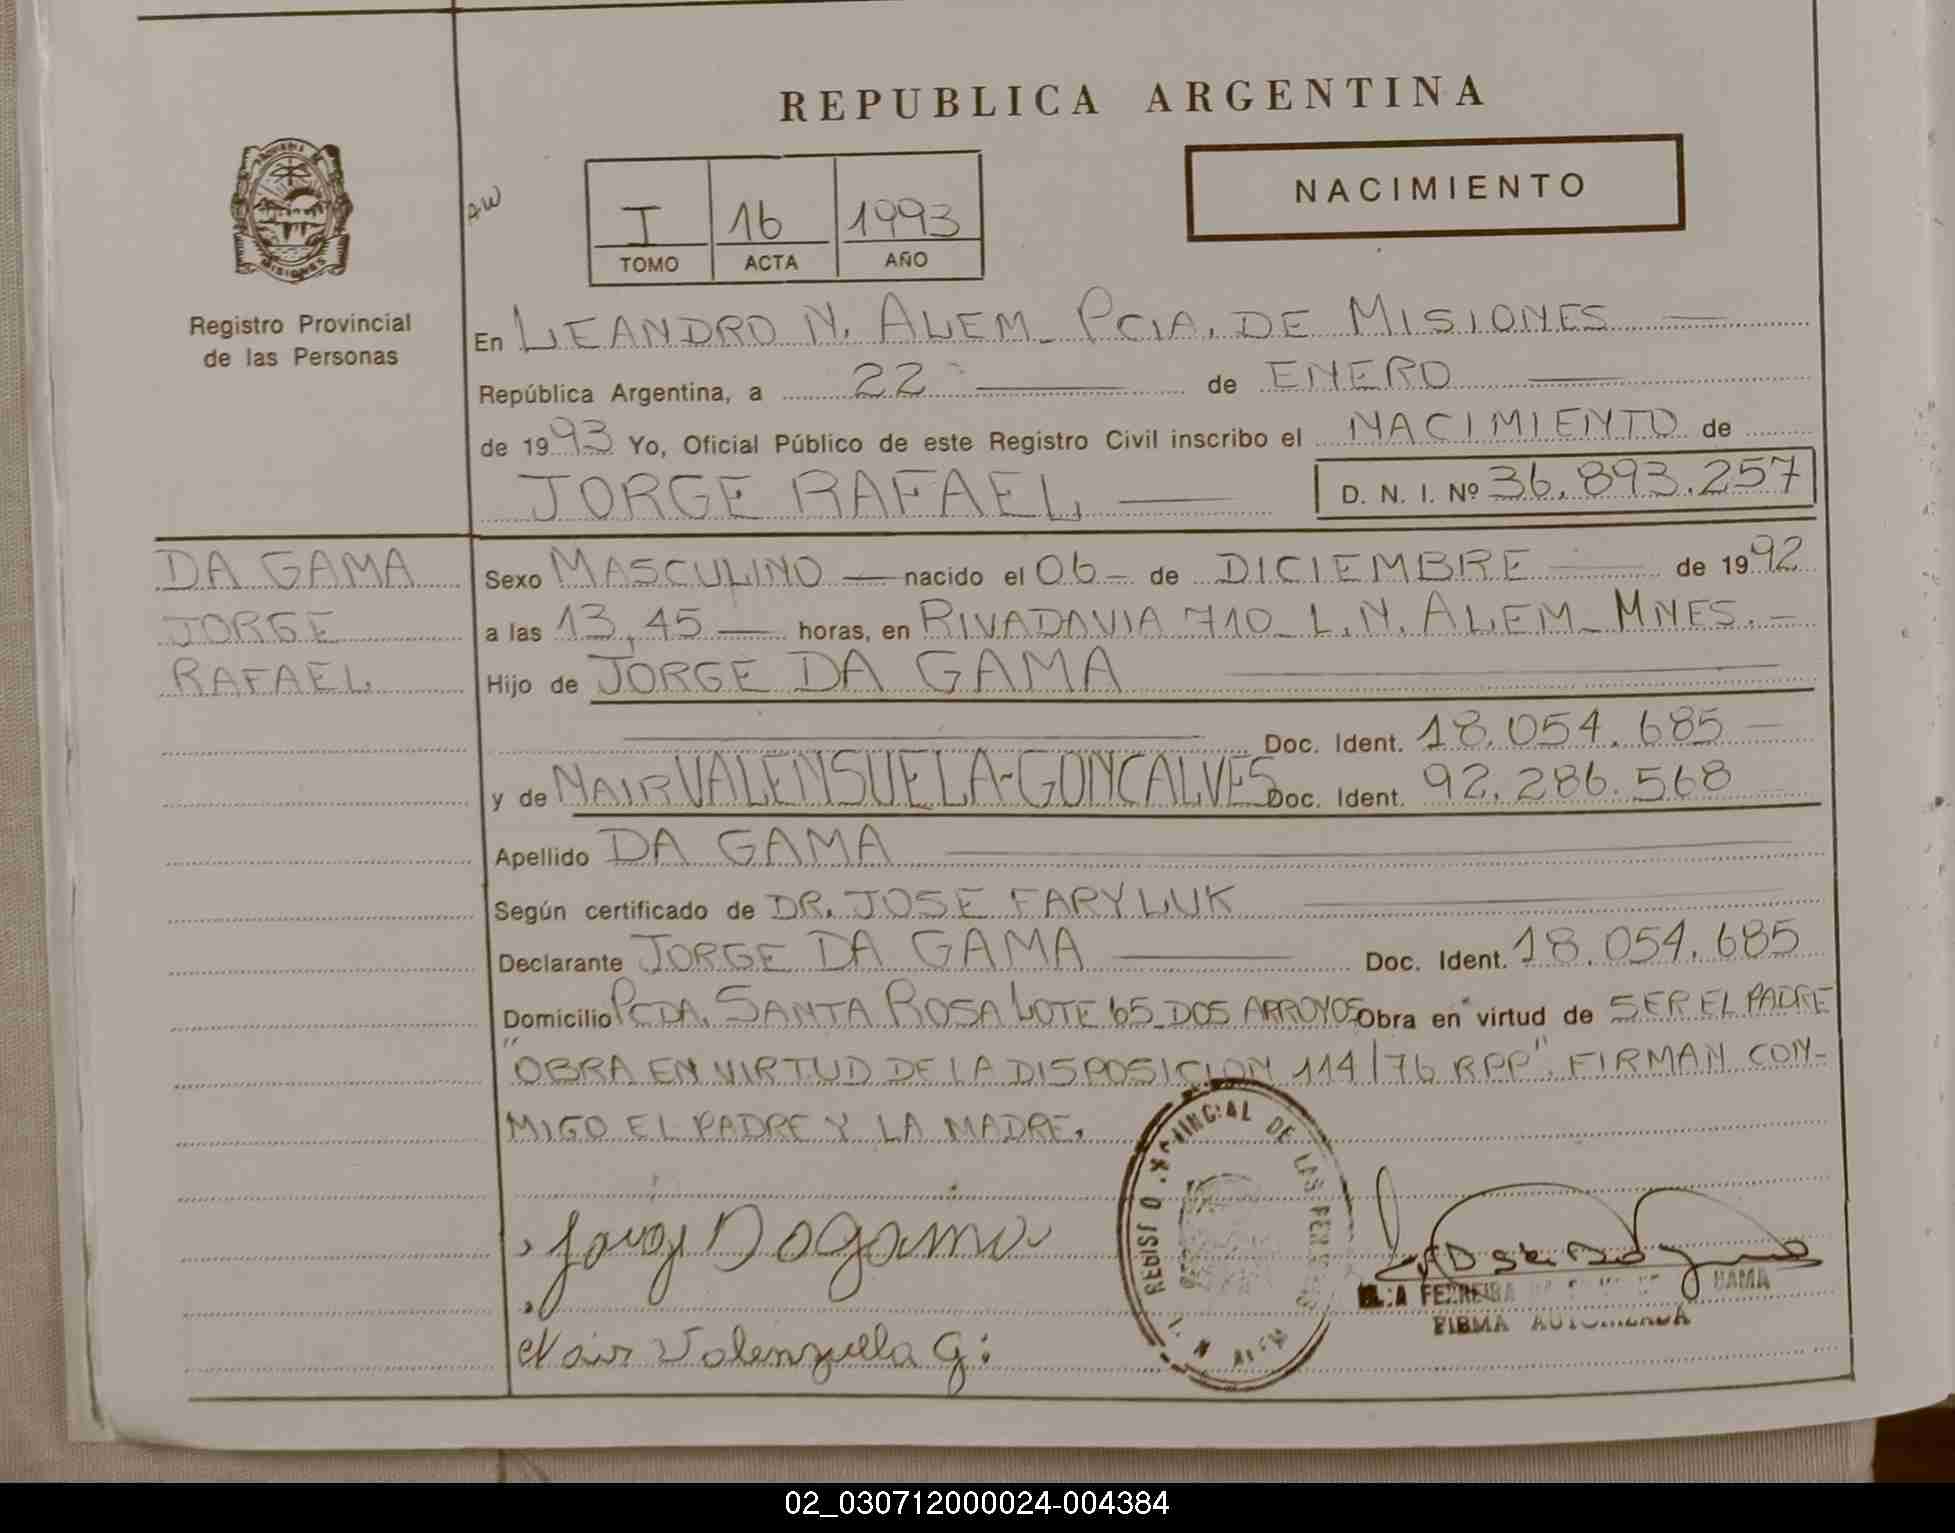 REPUBLICA ARGENTINA
NACIMIENTO
AW
I 16 1993
TOMO ACTA AÑO
MISIONES
Registro Provincial
de las Personas
En LEANDRO N. ALEM_ PCIA. DE MISIONES
República Argentina, a 22 de ENERO
de 1993 Yo, Oficial Público de este Registro Civil inscribo el NACIMIENTO de
JORGE RAFAEL D. N. I. Nº 36.893.257
DA GAMA
JORGE
RAFAEL
Sexo MASCULINO nacido el 06 de DICIEMBRE de 1992
a las 13,45 horas, en RIVADAVIA 710_ L.N. ALEM_ MNES.
Hijo de JORGE DA GAMA
Doc. Ident. 18.054.685
y de NAIR VALENSUELA-GONCALVES Doc. Ident. 92.286.568
Apellido DA GAMA
Según certificado de DR. JOSE FARYLUK
Declarante JORGE DA GAMA Doc. Ident. 18.054.685
Domicilio PCDA. SANTA ROSA LOTE 65_DOS ARROYOS Obra en virtud de SER EL PADRE
"OBRA EN VIRTUD DE LA DISPOSICION 114/76 RPP". FIRMAN CON-
MIGO EL PADRE Y LA MADRE.
REGISTRO PROVINCIAL DE LAS PERSONAS
L. N. ALEM
FERREIRA GAMA
FIRMA AUTORIZADA
Nair Valenzuella G:
02_030712000024-004384